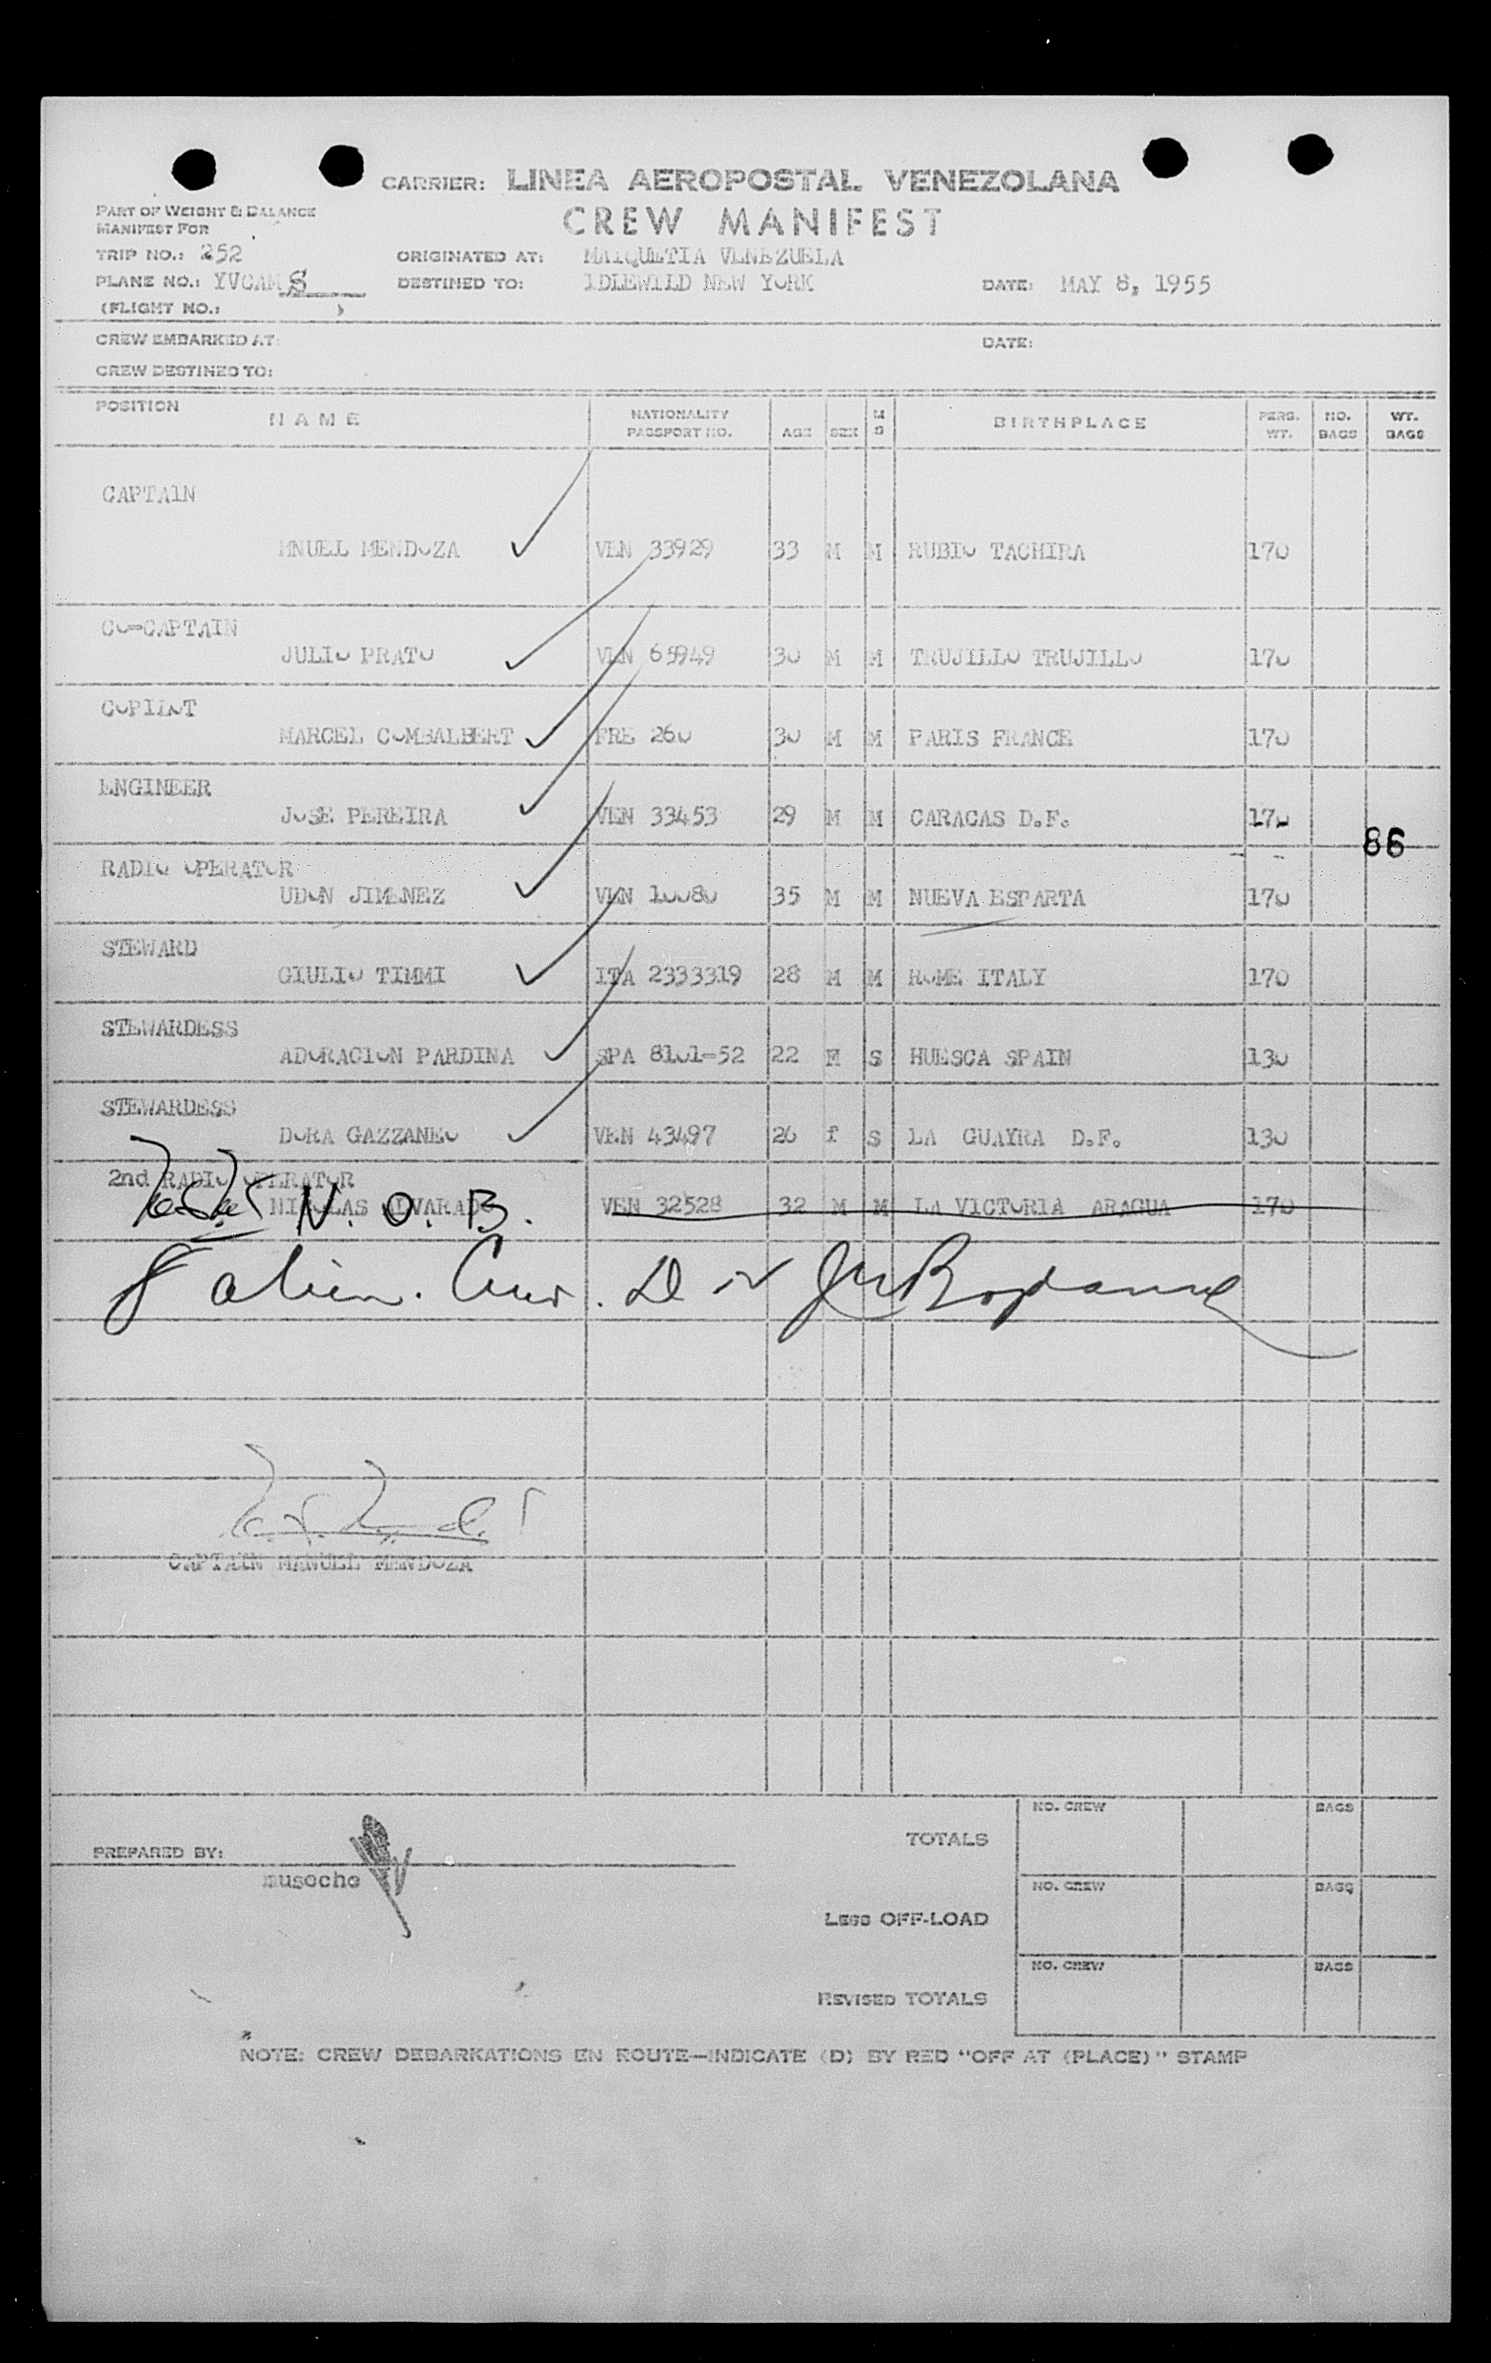 CARRIER: LINEA AEROPOSTAL VENEZOLANA
PART OF WEIGHT & BALANCE
MANIFEST FOR
CREW MANIFEST
TRIP NO.: 252 ORIGINATED AT: MAIQUETIA VENEZUELA
PLANE NO.: YVCAMS DESTINED TO: IDLEWILD NEW YORK DATE: MAY 8, 1955
(FLIGHT NO.: )
CREW EMBARKED AT: DATE:
CREW DESTINED TO:
POSITION NAME NATIONALITY PASSPORT NO. AGE SEX M S BIRTHPLACE PERS. WT. NO. BAGS WT. BAGS
CAPTAIN
MNUEL MENDOZA VEN 33929 33 M M RUBIO TACHIRA 170
CO-CAPTAIN
JULIO PRATO VEN 65949 30 M M TRUJILLO TRUJILLO 170
COPILOT
MARCEL COMBALBERT FRE 260 30 M M PARIS FRANCE 170
ENGINEER
JOSE PEREIRA VEN 33453 29 M M CARACAS D.F. 170
86
RADIO OPERATOR
UDON JIMENEZ VEN 10080 35 M M NUEVA ESPARTA 170
STEWARD
GIULIO TIMMI ITA 2333319 28 M M ROME ITALY 170
STEWARDESS
ADORACION PARDINA SPA 8101-52 22 S HUESCA SPAIN 130
STEWARDESS
DORA GAZZANEO VEN 43497 26 f S LA GUAYRA D.F. 130
2nd RADIO OPERATOR
NICOLAS ALVARADO N.O.B. VEN 32528 32 M M LA VICTORIA ARAGUA 170
8 alien. Crew.
CAPTAIN MANUEL MENDOZA
PREPARED BY:
musoche
TOTALS NO. CREW BAGS
LESS OFF-LOAD NO. CREW BAGS
REVISED TOTALS NO. CREW BAGS
NOTE: CREW DEBARKATIONS EN ROUTE—INDICATE (D) BY RED "OFF AT (PLACE)" STAMP